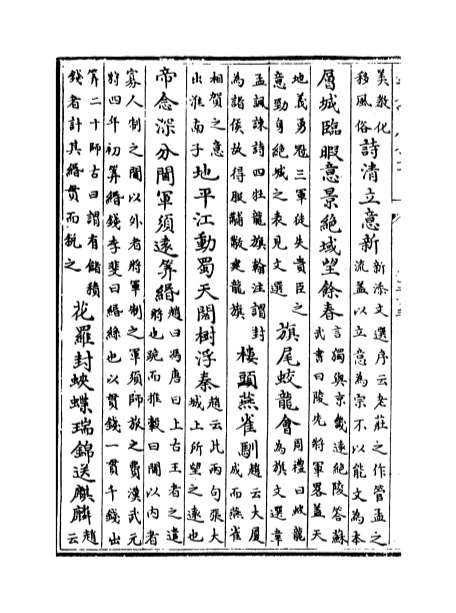 美敎化移風俗詩清立意新新添文選序云老莊之作管孟之流蓋以立意為宗不以能文為本
層城臨暇意景絶域望餘春言獨與京畿遠絶陵答蘇武書曰陵先將軍畧蓋天
地義勇冠三軍徒失貴臣之意勁身絶域之表見文選旗尾蛟龍會周禮曰蛟龍為旗文選韋
孟諷諫詩四牡龍旗翰注謂封為諸侯故得服黼黻建龍旗樓頭燕雀馴趙云大厦成而燕雀
相賀之意出淮南子地平江動蜀天闊樹浮秦趙云此兩句張大城上所望之遠也
帝念深分閫軍須遠筭緡趙曰馮唐曰上古王者之遣將也跪而推轂曰閫以内者
寡人制之閫以外者將軍制之軍須師旅之費漢武元狩四年初筭緡錢李斐曰緡絲也以貫錢一貫千錢出
筭二十師古曰謂有儲積錢者計其緡貫而税之花羅封蛺蝶瑞錦送麒麟趙云